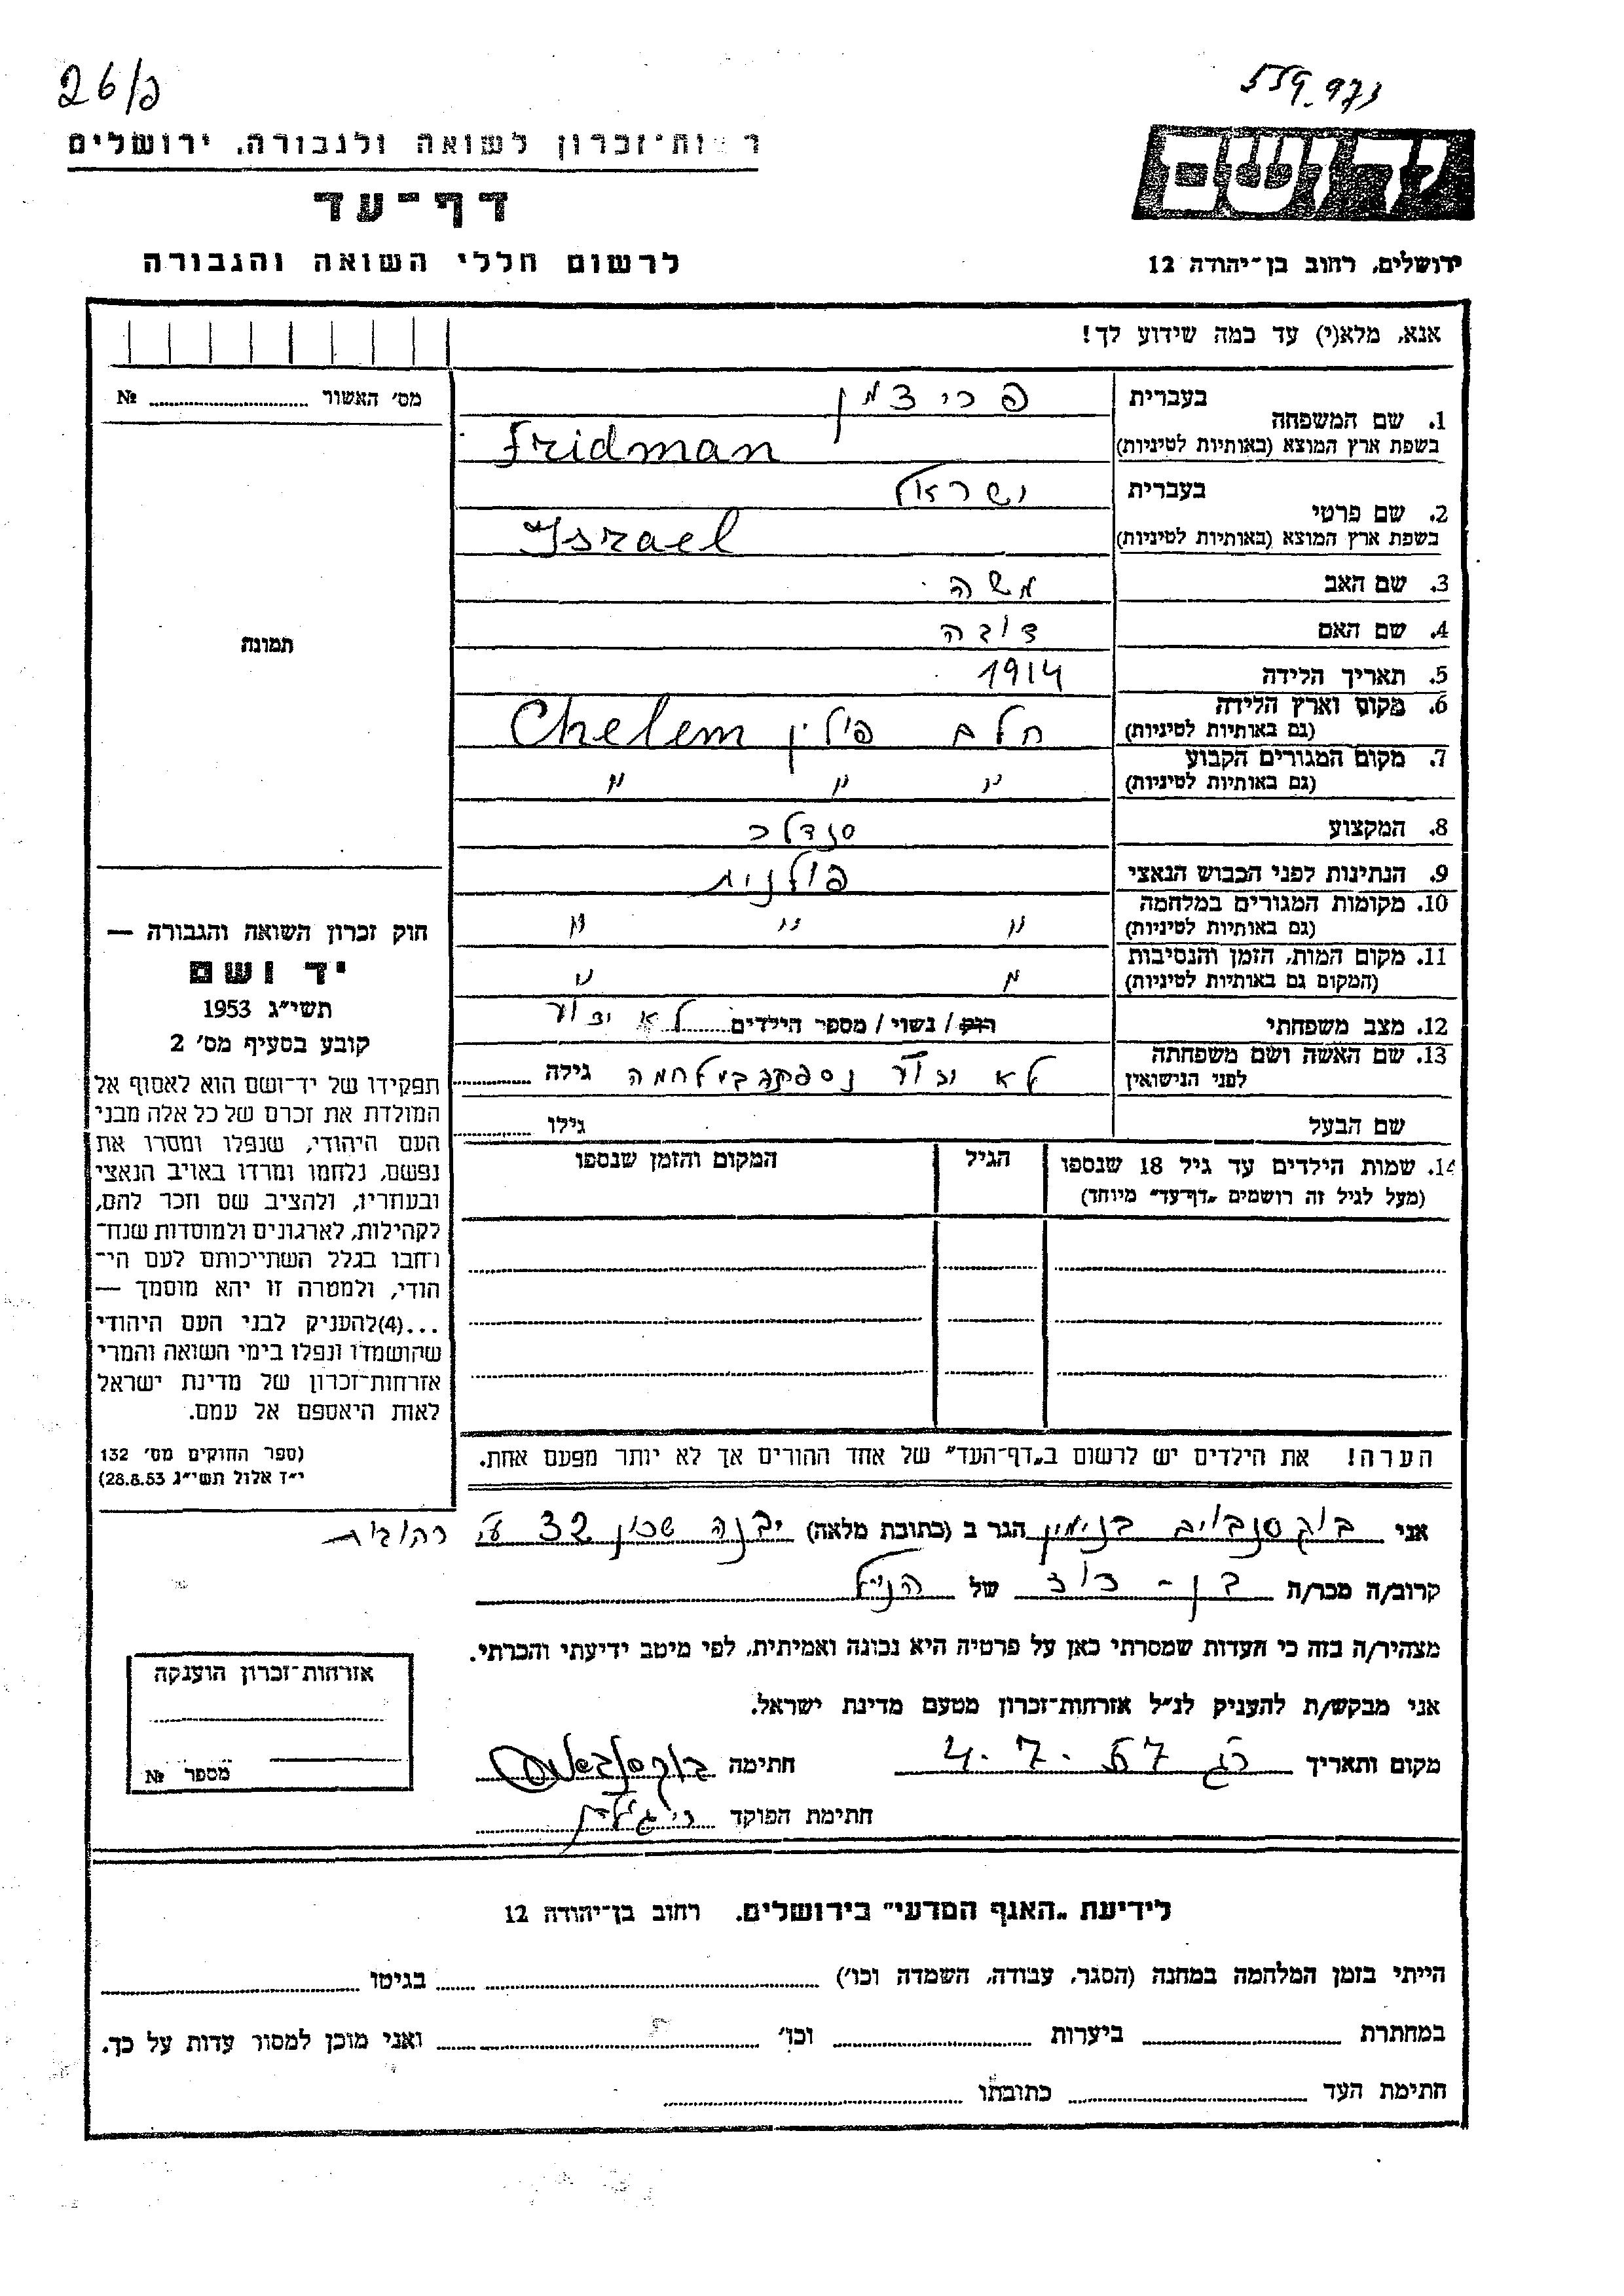 26/פ
559.973
רשות־זכרון לשואה ולגבורה. ירושלים
דף־עד
לרשום חללי השואה והגבורה
יד ושם
ירושלים, רחוב בן־יהודה 12
אנא, מלא(י) עד כמה שידוע לך!
מס׳ האשור № 
תמונה
1. שם המשפחה
בעברית
פרידמן
בשפת ארץ המוצא (באותיות לטיניות)
Fridman
2. שם פרטי
בעברית
ישראל
בשפת ארץ המוצא (באותיות לטיניות)
Israel
3. שם האב משה
4. שם האם דובה
5. תאריך הלידה 1914
6. מקום וארץ הלידה
(גם באותיות לטיניות)
חלם פולין Chelem
7. מקום המגורים הקבוע
(גם באותיות לטיניות)
״ ״ ״
8. המקצוע סנדלר
9. הנתינות לפני הכבוש הנאצי פולנית
10. מקומות המגורים במלחמה
(גם באותיות לטיניות)
״ ״ ״
11. מקום המות, הזמן והנסיבות
(המקום גם באותיות לטיניות)
״ ״
12. מצב משפחתי רוק / נשוי / מספר הילדים לא ידוע
13. שם האשה ושם משפחתה
לפני הנישואין
לא ידוע נספתה במלחמה גילה
שם הבעל גילו
14. שמות הילדים עד גיל 18 שנספו
(מעל לגיל זה רושמים „דף־עד״ מיוחד)
הגיל
המקום והזמן שנספו
חוק זכרון השואה והגבורה —
יד ושם
תשי״ג 1953
קובע בסעיף מס׳ 2
תפקידו של יד־ושם הוא לאסוף אל
המולדת את זכרם של כל אלה מבני
העם היהודי, שנפלו ומסרו את
נפשם, נלחמו ומרדו באויב הנאצי
ובעוזריו, ולהציב שם וזכר להם,
לקהילות, לארגונים ולמוסדות שנח־
רחבו בגלל השתייכותם לעם הי־
הודי, ולמטרה זו יהא מוסמך —
...(4)להעניק לבני העם היהודי
שהושמדו ונפלו בימי השואה והמרי
אזרחות־זכרון של מדינת ישראל
לאות היאספם אל עמם.
(ספר החוקים מס׳ 132
י״ד אלול תשי״ג 28.8.53)
הערה! את הילדים יש לרשום ב„דף־העד״ של אחד ההורים אך לא יותר מפעם אחת.
אני בוקסנבוים בנימין הגר ב (כתובת מלאה) יבנה שכון 32 ע״י רהובות
קרוב/ה מכר/ה בן - דוד של הנ״ל
מצהיר/ה בזה כי העדות שמסרתי כאן על פרטיה היא נכונה ואמיתית, לפי מיטב ידיעתי והכרתי.
אני מבקש/ת להעניק לנ״ל אזרחות־זכרון מטעם מדינת ישראל.
מקום ותאריך 4.7.57 חתימה בוקסנבוים
חתימת הפוקד
אזרחות־זכרון הוענקה
מספר №
לידיעת „האגף המדעי״ בירושלים. רחוב בן־יהודה 12
הייתי בזמן המלחמה במחנה (הסגר, עבודה, השמדה וכו׳) בגיטו
במחתרת ביערות וכו׳ ואני מוכן למסור עדות על כך.
חתימת העד כתובתו